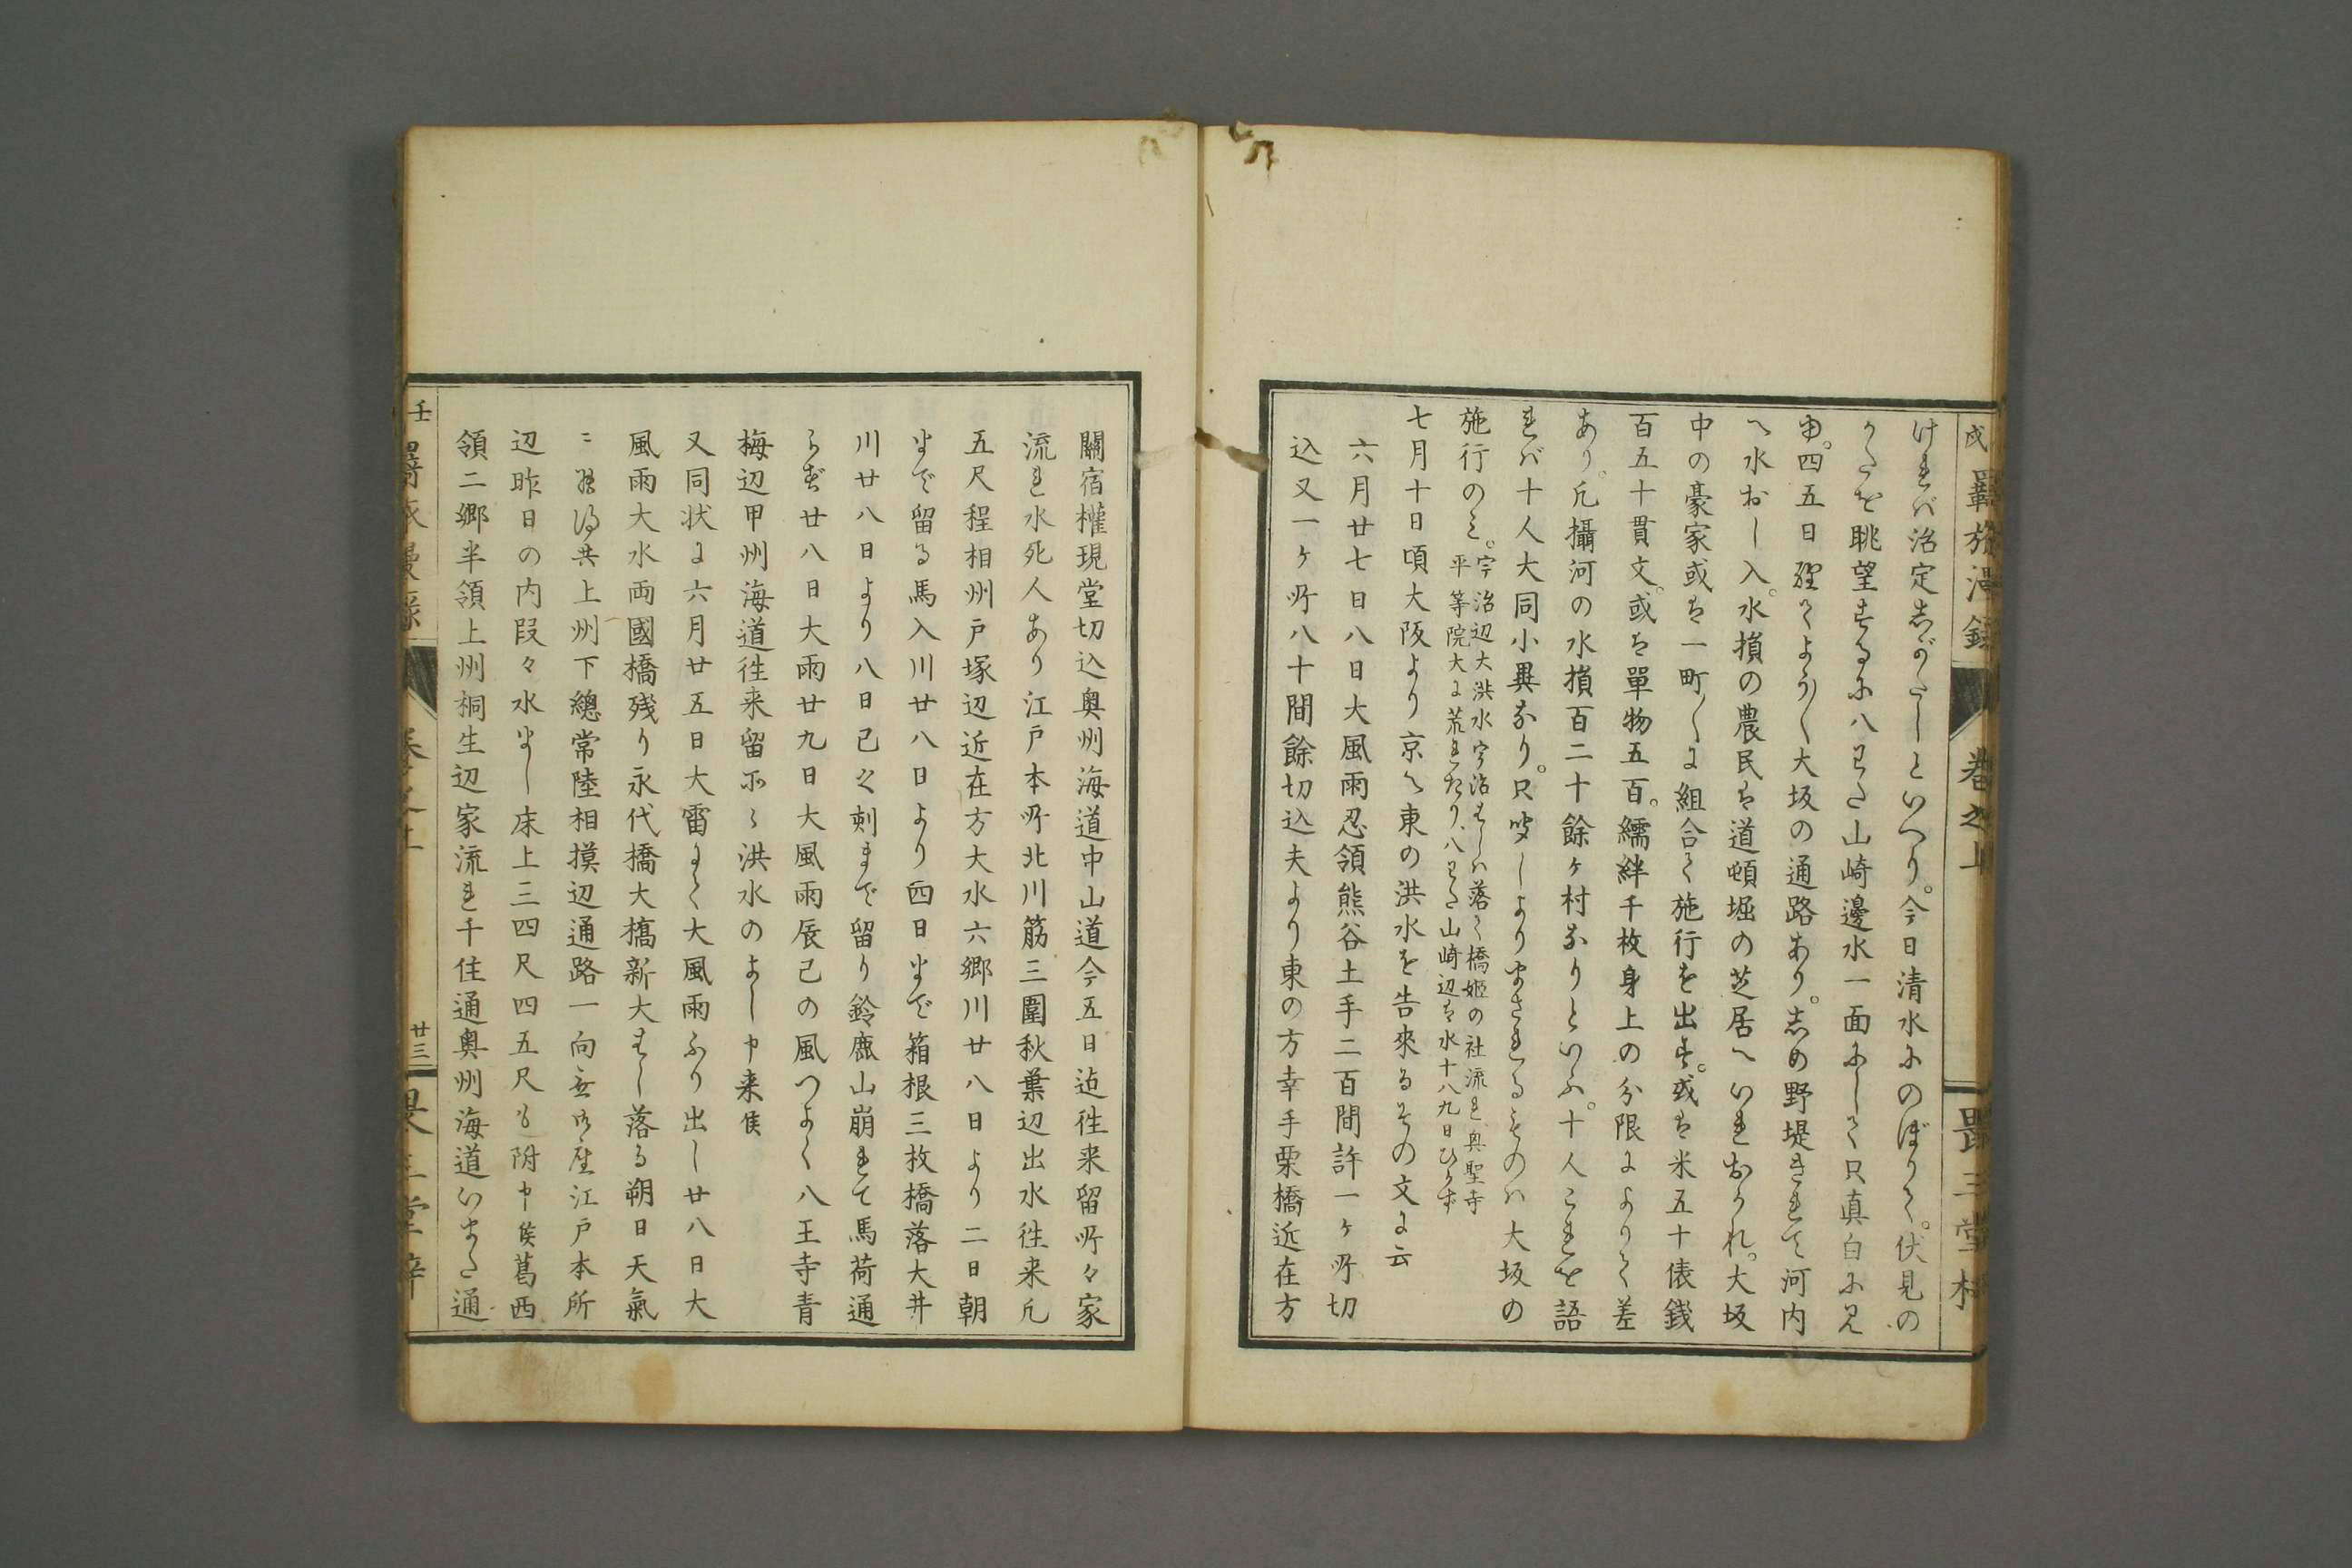 けれバ治定志がたしといへり。今日清水にのぼりて。伏見の
かたを眺望するに八わた山崎邊水一面にして只真白に見
ゆ。四五日経てよう〳〵大坂の通路あり。志め野堤きれて河内
へ水おし入。水損の農民は道頓堀の芝居へいれおかれ。大坂
中の豪家或は一町〳〵に組合て施行を出す。或は米五十俵錢
百五十貫文。或は單物五百。繻絆千枚身上の分限によりて差
あり。凡攝河の水損百二十餘ヶ村なりといふ。十人これを語
れバ十人大同小異なり。只咲しよりまされるものハ大坂の
施行のミ。宇治辺大洪水宇治はしハ落て橋姫の社流れ奥聖寺
平等院大に荒れたり、八わた山崎辺は水十八九日ひかず
七月十日頃大阪より京へ東の洪水を告來るその文に云
六月廿七日八日大風雨忍領熊谷土手二百間許一ヶ所切
込又一ヶ所八十間餘切込夫より東の方幸手栗橋近在方
戌 羇旅漫録 巻之上 畏三堂梓
關宿權現堂切込奥州海道中山道今五日迠往来留所々家
流れ水死人あり江戸本所北川筋三圍秋葉辺出水往来凡
五尺程相州戸塚辺近在方大水六郷川廿八日より二日朝
まで留る馬入川廿八日より四日まで箱根三枚橋落大井
川廿八日より八日巳之刻まで留り鈴鹿山崩れて馬荷通
らず廿八日大雨廿九日大風雨辰己の風つよく八王寺青
梅辺甲州海道往来留不及洪水のよし申来候
又同状に六月廿五日大雷にて大風雨ふり出し廿八日大
風雨大水両國橋残り永代橋大橋新大はし落る朔日天氣
ニ相成共上州下總常陸相摸辺通路一向無御座江戸本所
辺昨日の内段々水まし床上三四尺四五尺も附申候葛西
領二郷半領上州桐生辺家流れ千住通奥州海道いまた通
壬 羇旅漫録 巻之上 廿三 畏三堂梓